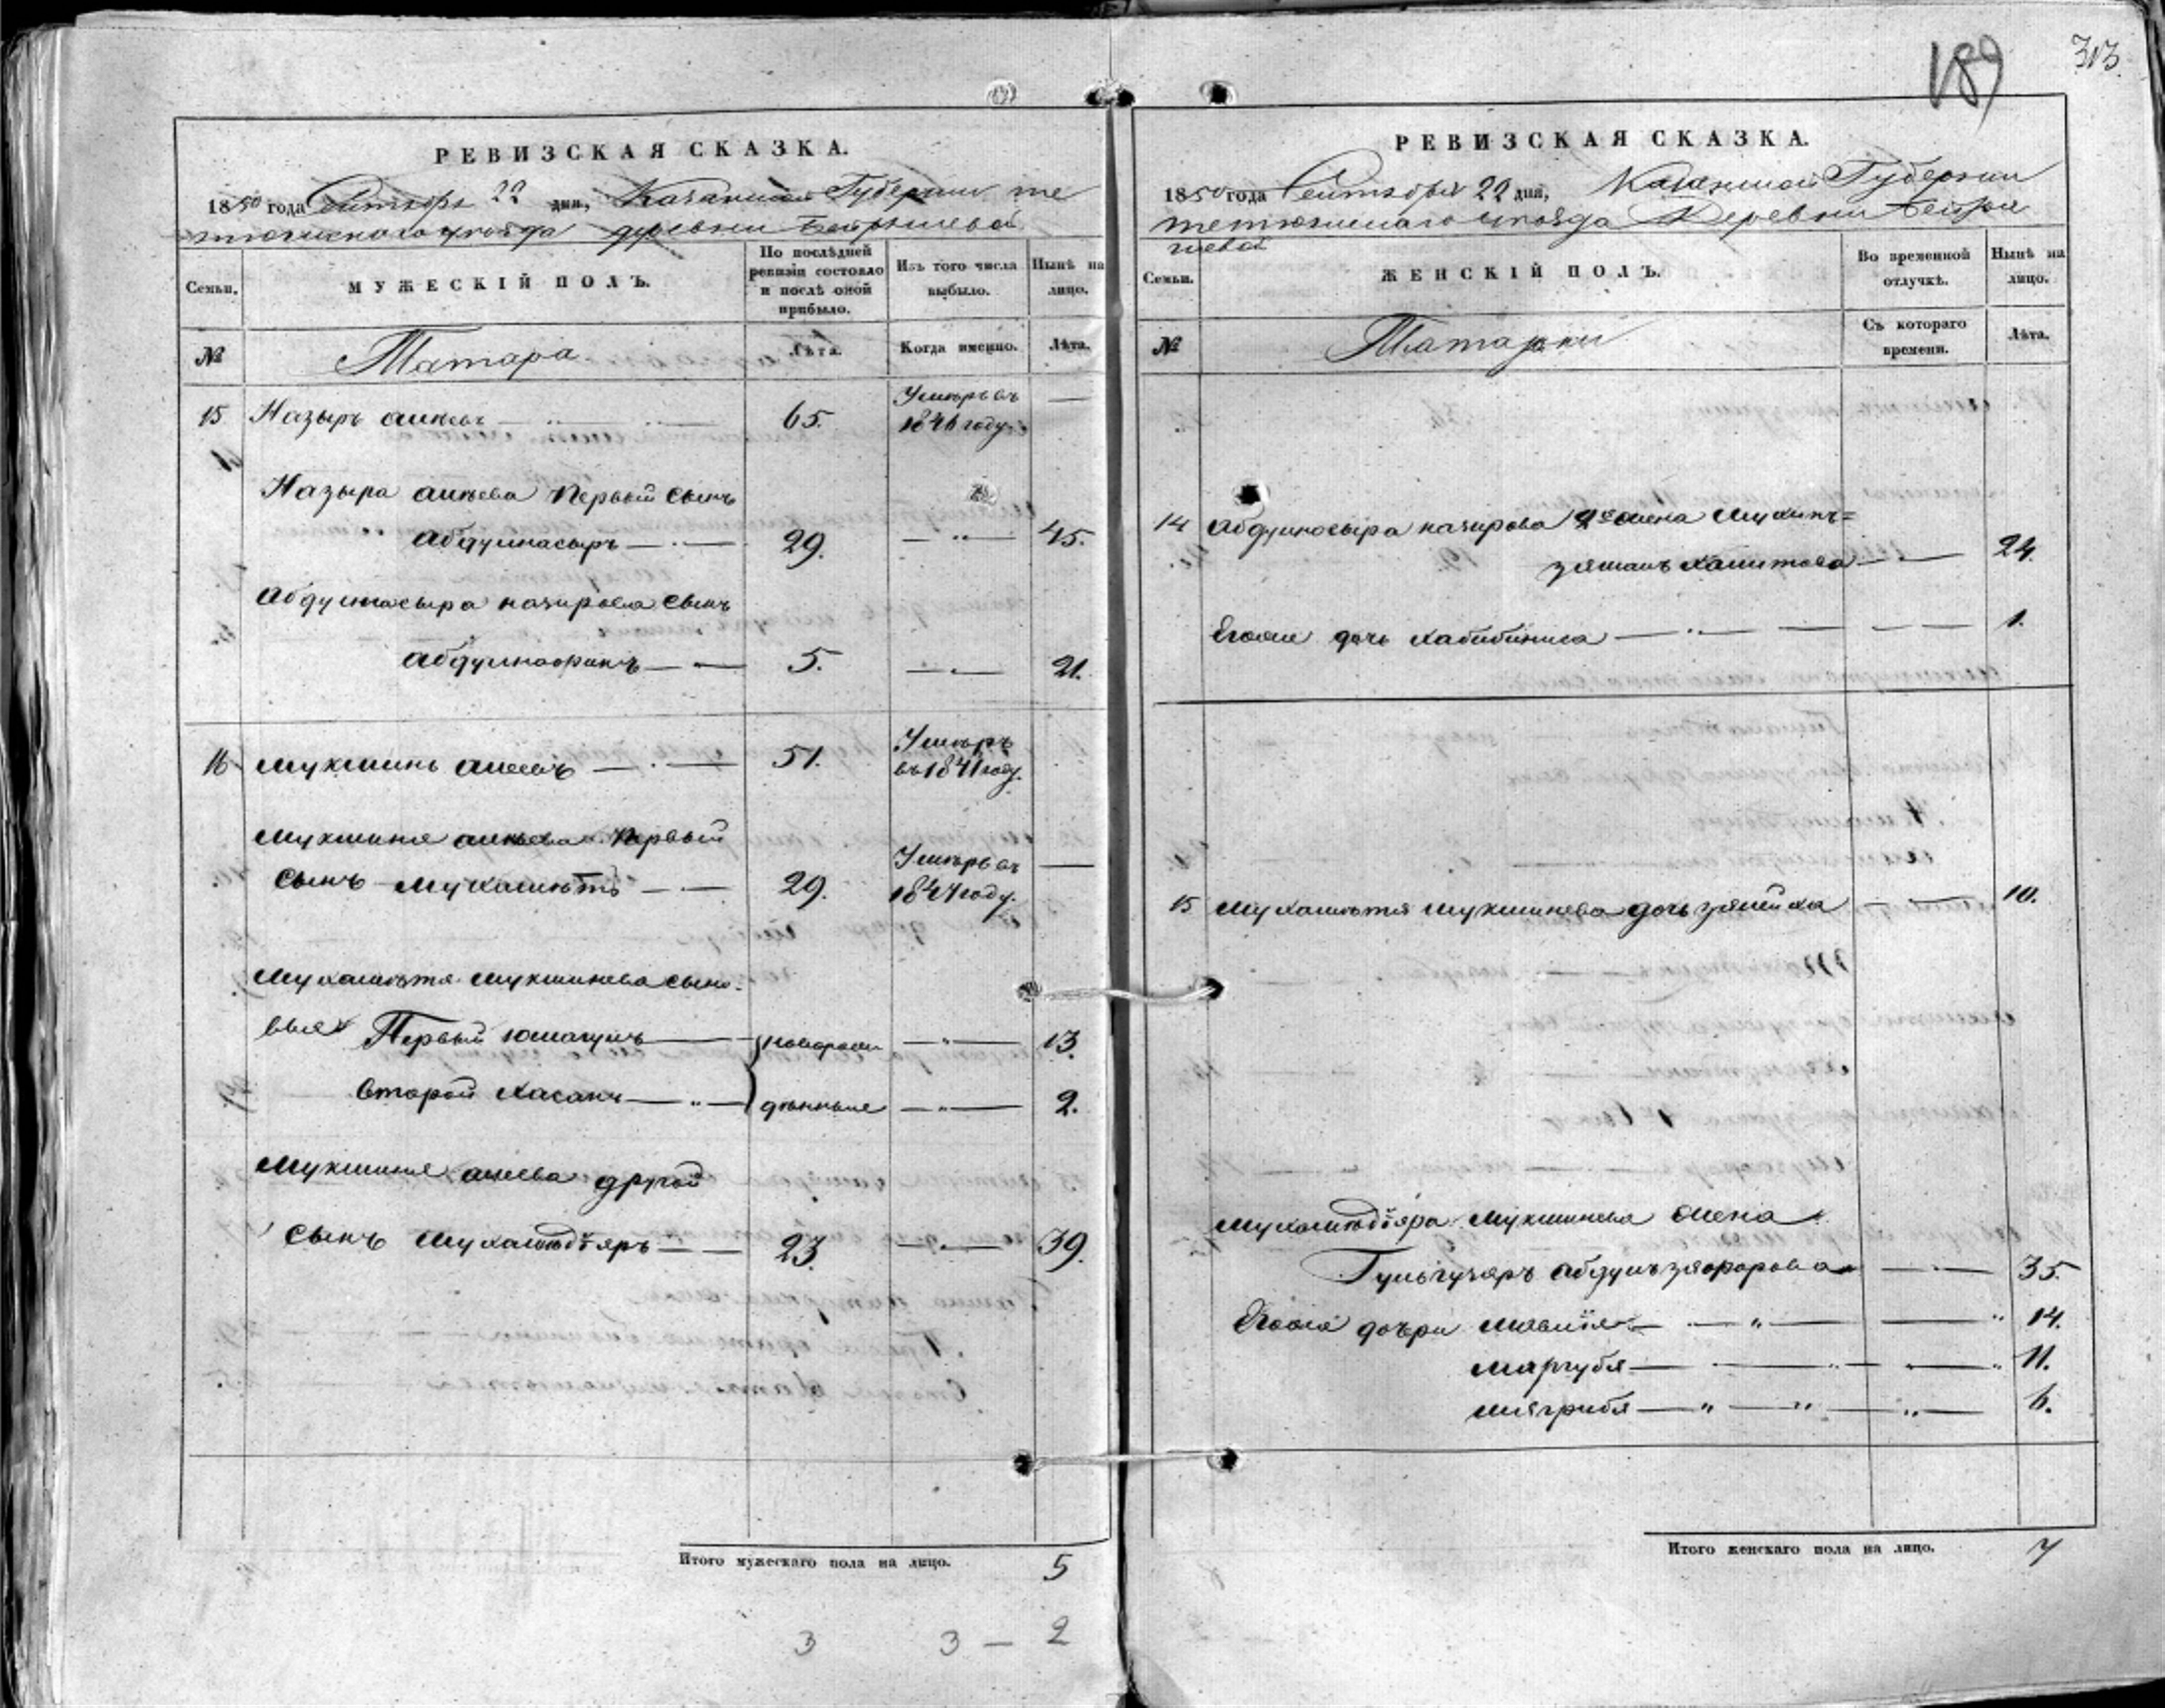 189 313.
РЕВИЗСКАЯ СКАЗКА.
1850 года Сентября 22 дня, Казанской Губернии Те
тюшскаго уѣзда деревни Беюргшевой
Семьи.
МУЖЕСКІЙ ПОЛЪ.
По послѣдней ревизіи состояло и послѣ оной прибыло.
Изъ того числа выбыло.
Нынѣ на лицо.
№
Татара
Лѣта.
Когда именно.
Лѣта.
15 Назыръ Алѣевъ 65. Умеръ въ —
1846 году.
Назыра Алѣева Первый Сынъ
Абдулнасыръ — 29. — 45.
Абдулнасыра Назирова Сынъ
Абдулнафикъ — 5. — 21.
16 Мукминъ Алеевъ — 51. Умеръ
въ 1841 году.
Мукминя Алѣева Первый
Сынъ Мухаметъ — 29. Умеръ въ —
1847 году.
Мухаметя Мукминева Сыно-
вья Первый Юмагулъ — новорож 13.
Второй Хасанъ — денные — 2.
Мукминя Алеева другой
Сынъ Мухамедіяръ — 23. — 39.
Итого мужескаго пола на лицо. 5
3 3 — 2
РЕВИЗСКАЯ СКАЗКА.
1850 года Сентября 22 дня, Казанской Губернии
Тетюшскаго уѣзда Деревни
Семьи.
ЖЕНСКІЙ ПОЛЪ.
Во временной отлучкѣ.
Нынѣ на лицо.
№
Татарки
Съ котораго времени.
Лѣта.
14 Абдулнасыра Назирова жена
Хамитова — 24.
Егоже дочь Хабибиниса — 1.
15 Мухаметя Мукминева дочь Зялейха — 10.
Мухамедіяра Мукминева жена
Гульчучаръ — 35.
Егоже дочери — 14.
Маргубя — 11.
Мягрибя — 6.
Итого женскаго пола на лицо. 7